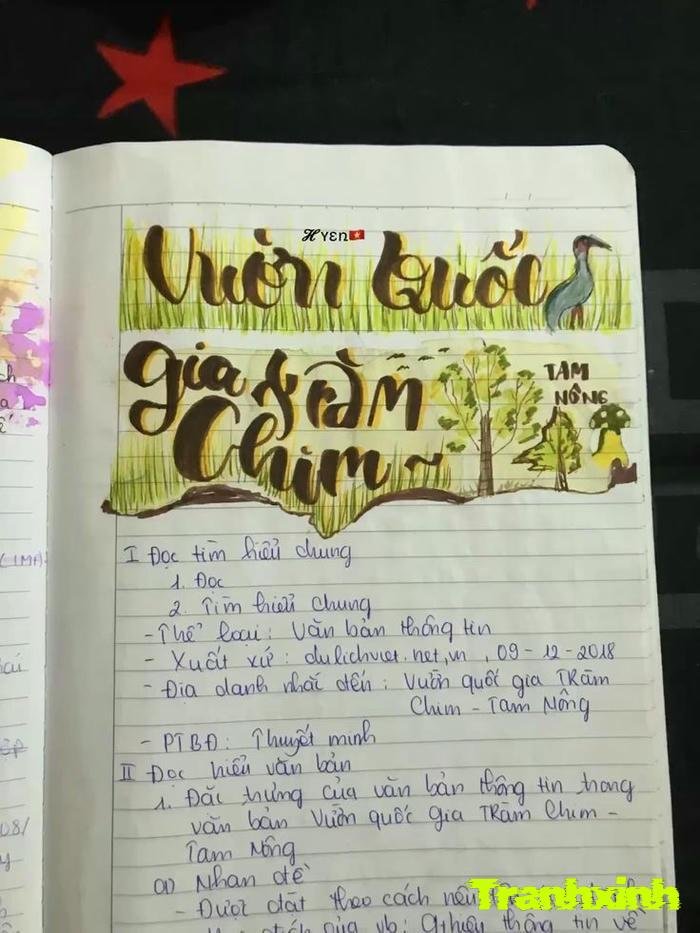 Hyen
Vườn Quốc
gia Tràm
Chim ~
TAM
NÔNG
I Đọc tìm hiểu chung
1. Đọc
2. Tìm hiểu chung
- Thể loại: Văn bản thông tin
- Xuất xứ: dulichviet.net.vn, 09-12-2018
- Địa danh nhắc đến: Vườn quốc gia Tràm
Chim - Tam Nông
- PTBĐ: Thuyết minh
II Đọc hiểu văn bản
1. Đặc trưng của văn bản thông tin trong
văn bản Vườn quốc gia Tràm Chim -
Tam Nông
a) Nhan đề
- Được đặt theo cách nêu
Tranhxinh
của vb: Gthiệu thông tin về